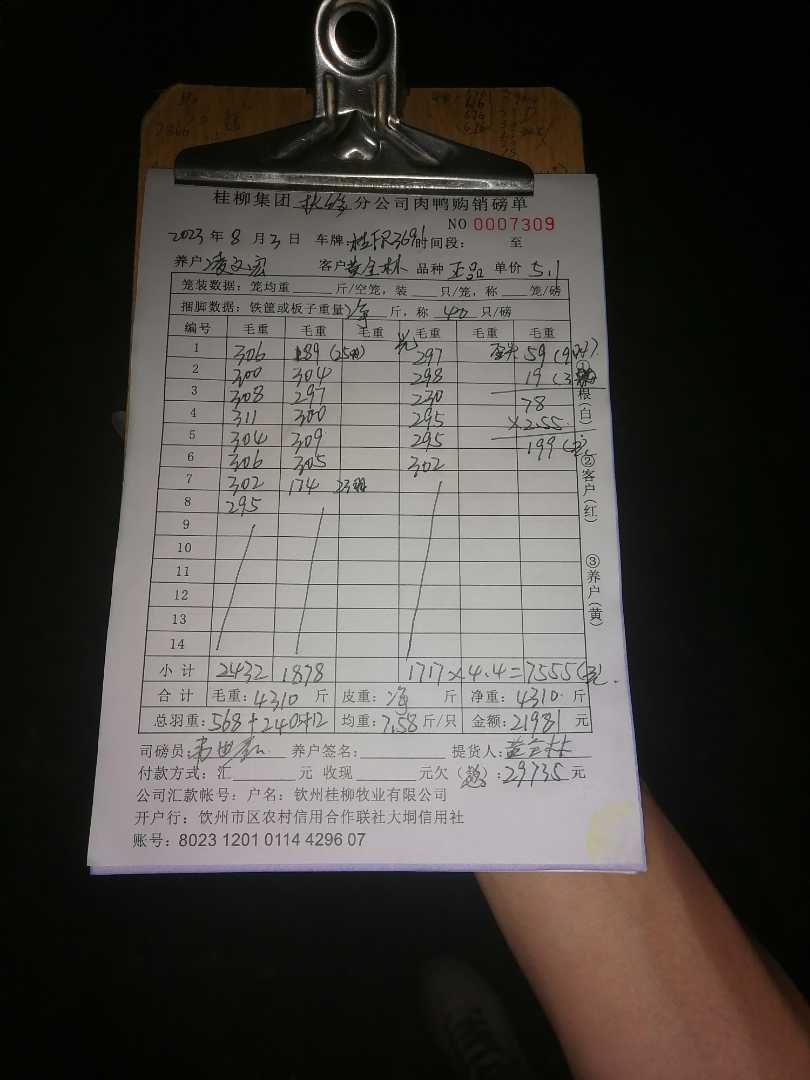 桂柳集团 分公司肉鸭购销磅单
NO 0007309
2023 年 8 月 3 日 车牌: 时间段: 至
养户: 凌文宏 客户 黄全林 品种 正品 单价 5.1
笼装数据: 笼均重 斤/空笼, 装 只/笼, 称 笼/磅
捆脚数据: 铁筐或板子重量 净 斤, 称 40 只/磅
编号 毛重 毛重 毛重 毛重 毛重 毛重
1 306 189 (25 297 59
2 300 304 298 19
3 308 297 230 78
4 311 300 295 ×2.55
5 304 309 295 199
6 306 305 302
7 302 174 23
8 295
9
10
11
12
13
14
小计 2432 1878 1717×4.4=7555
合计 毛重: 4310 斤 皮重: 净 斤 净重: 4310 斤
总羽重: 568+240+12 均重: 7.58 斤/只 金额: 21981 元
司磅员: 养户签名: 提货人: 黄全林
付款方式: 汇 元 收现 元欠 ( ): 29735 元
公司汇款帐号: 户名: 钦州桂柳牧业有限公司
开户行: 钦州市区农村信用合作联社大垌信用社
账号: 8023 1201 0114 4296 07
根(白)
②客户(红)
③养户(黄)